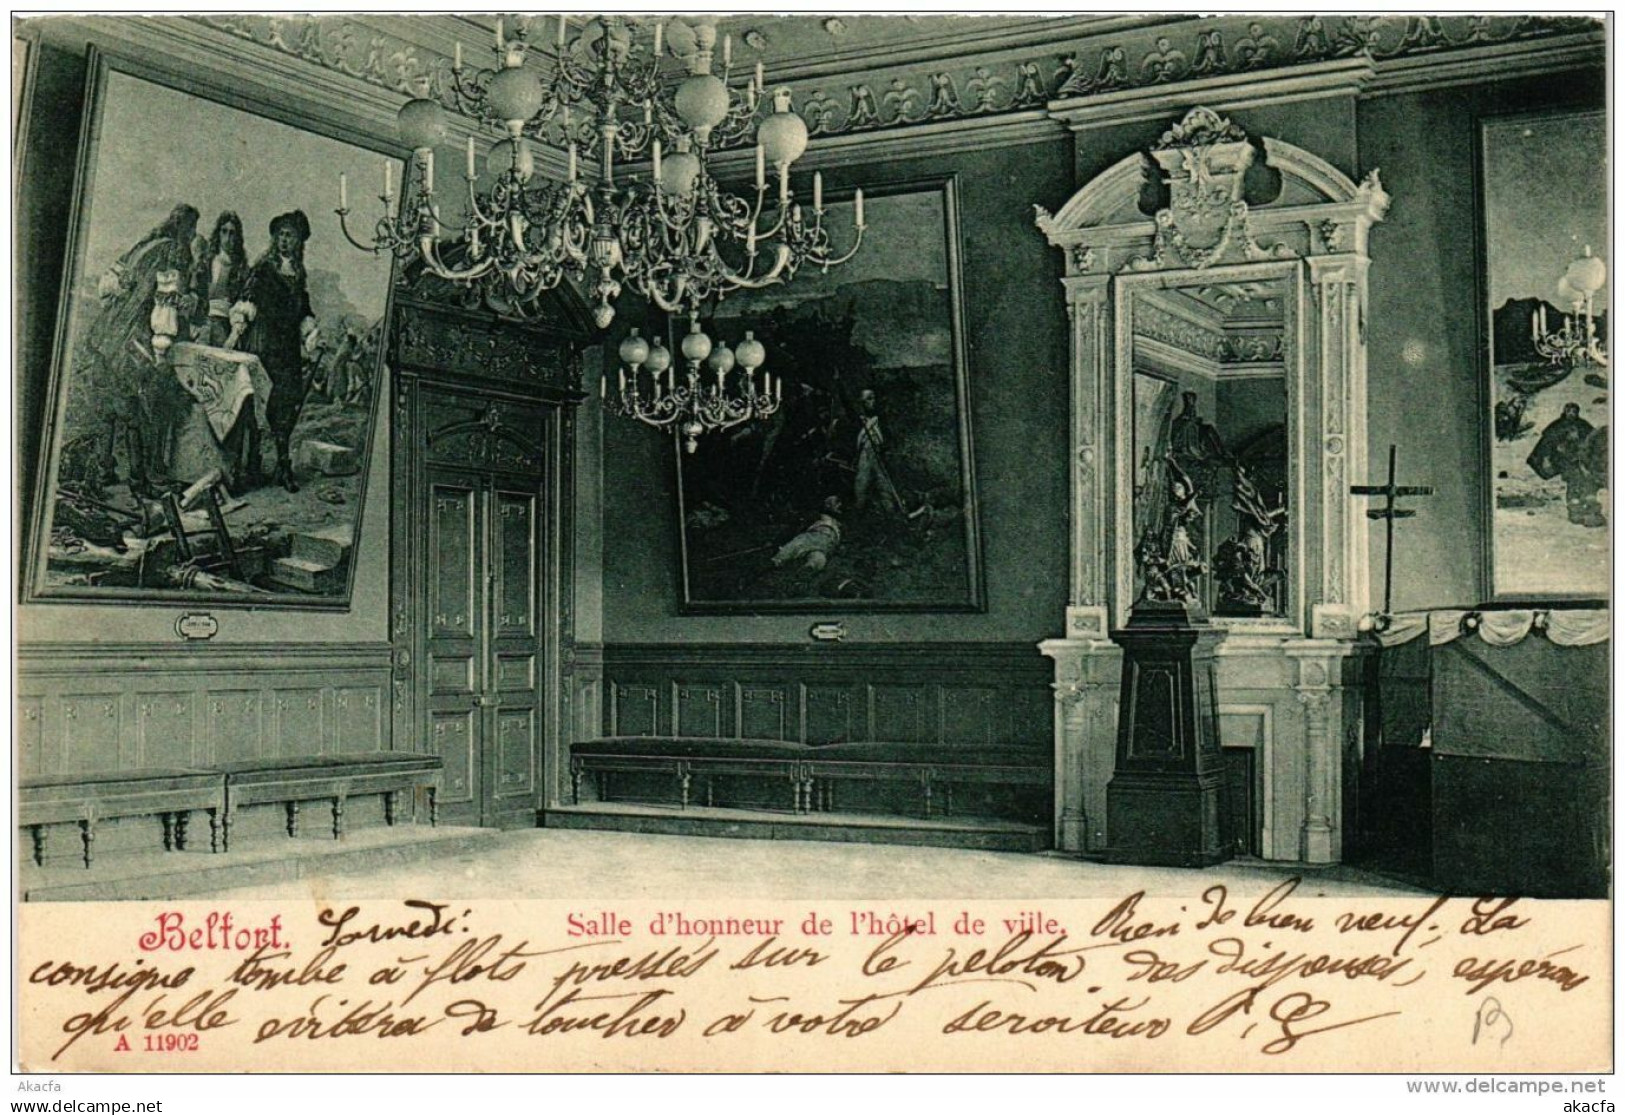 Belfort. Samedi: Salle d'honneur de l'hôtel de ville. Rien de bien neuf. La
consigne tombe à flots pressés sur le peloton des dispensés, espérons
qu'elle évitera de toucher à votre serviteur P. G
A 11902
Akacfa
www.delcampe.net
akacfa
akacfa